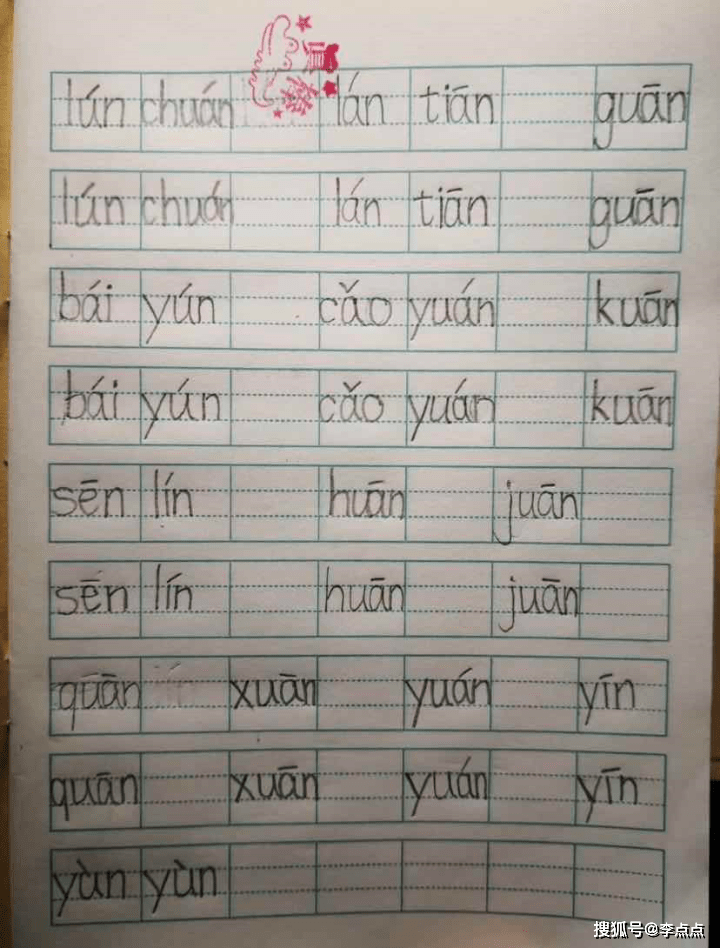 lún chuán lán tiān guān
lún chuán lán tiān guān
bái yún cǎo yuán kuān
bái yún cǎo yuán kuān
sēn lín huān juān
sēn lín huān juān
quān xuān yuán yīn
quān xuān yuán yīn
yùn yùn
搜狐号@李点点